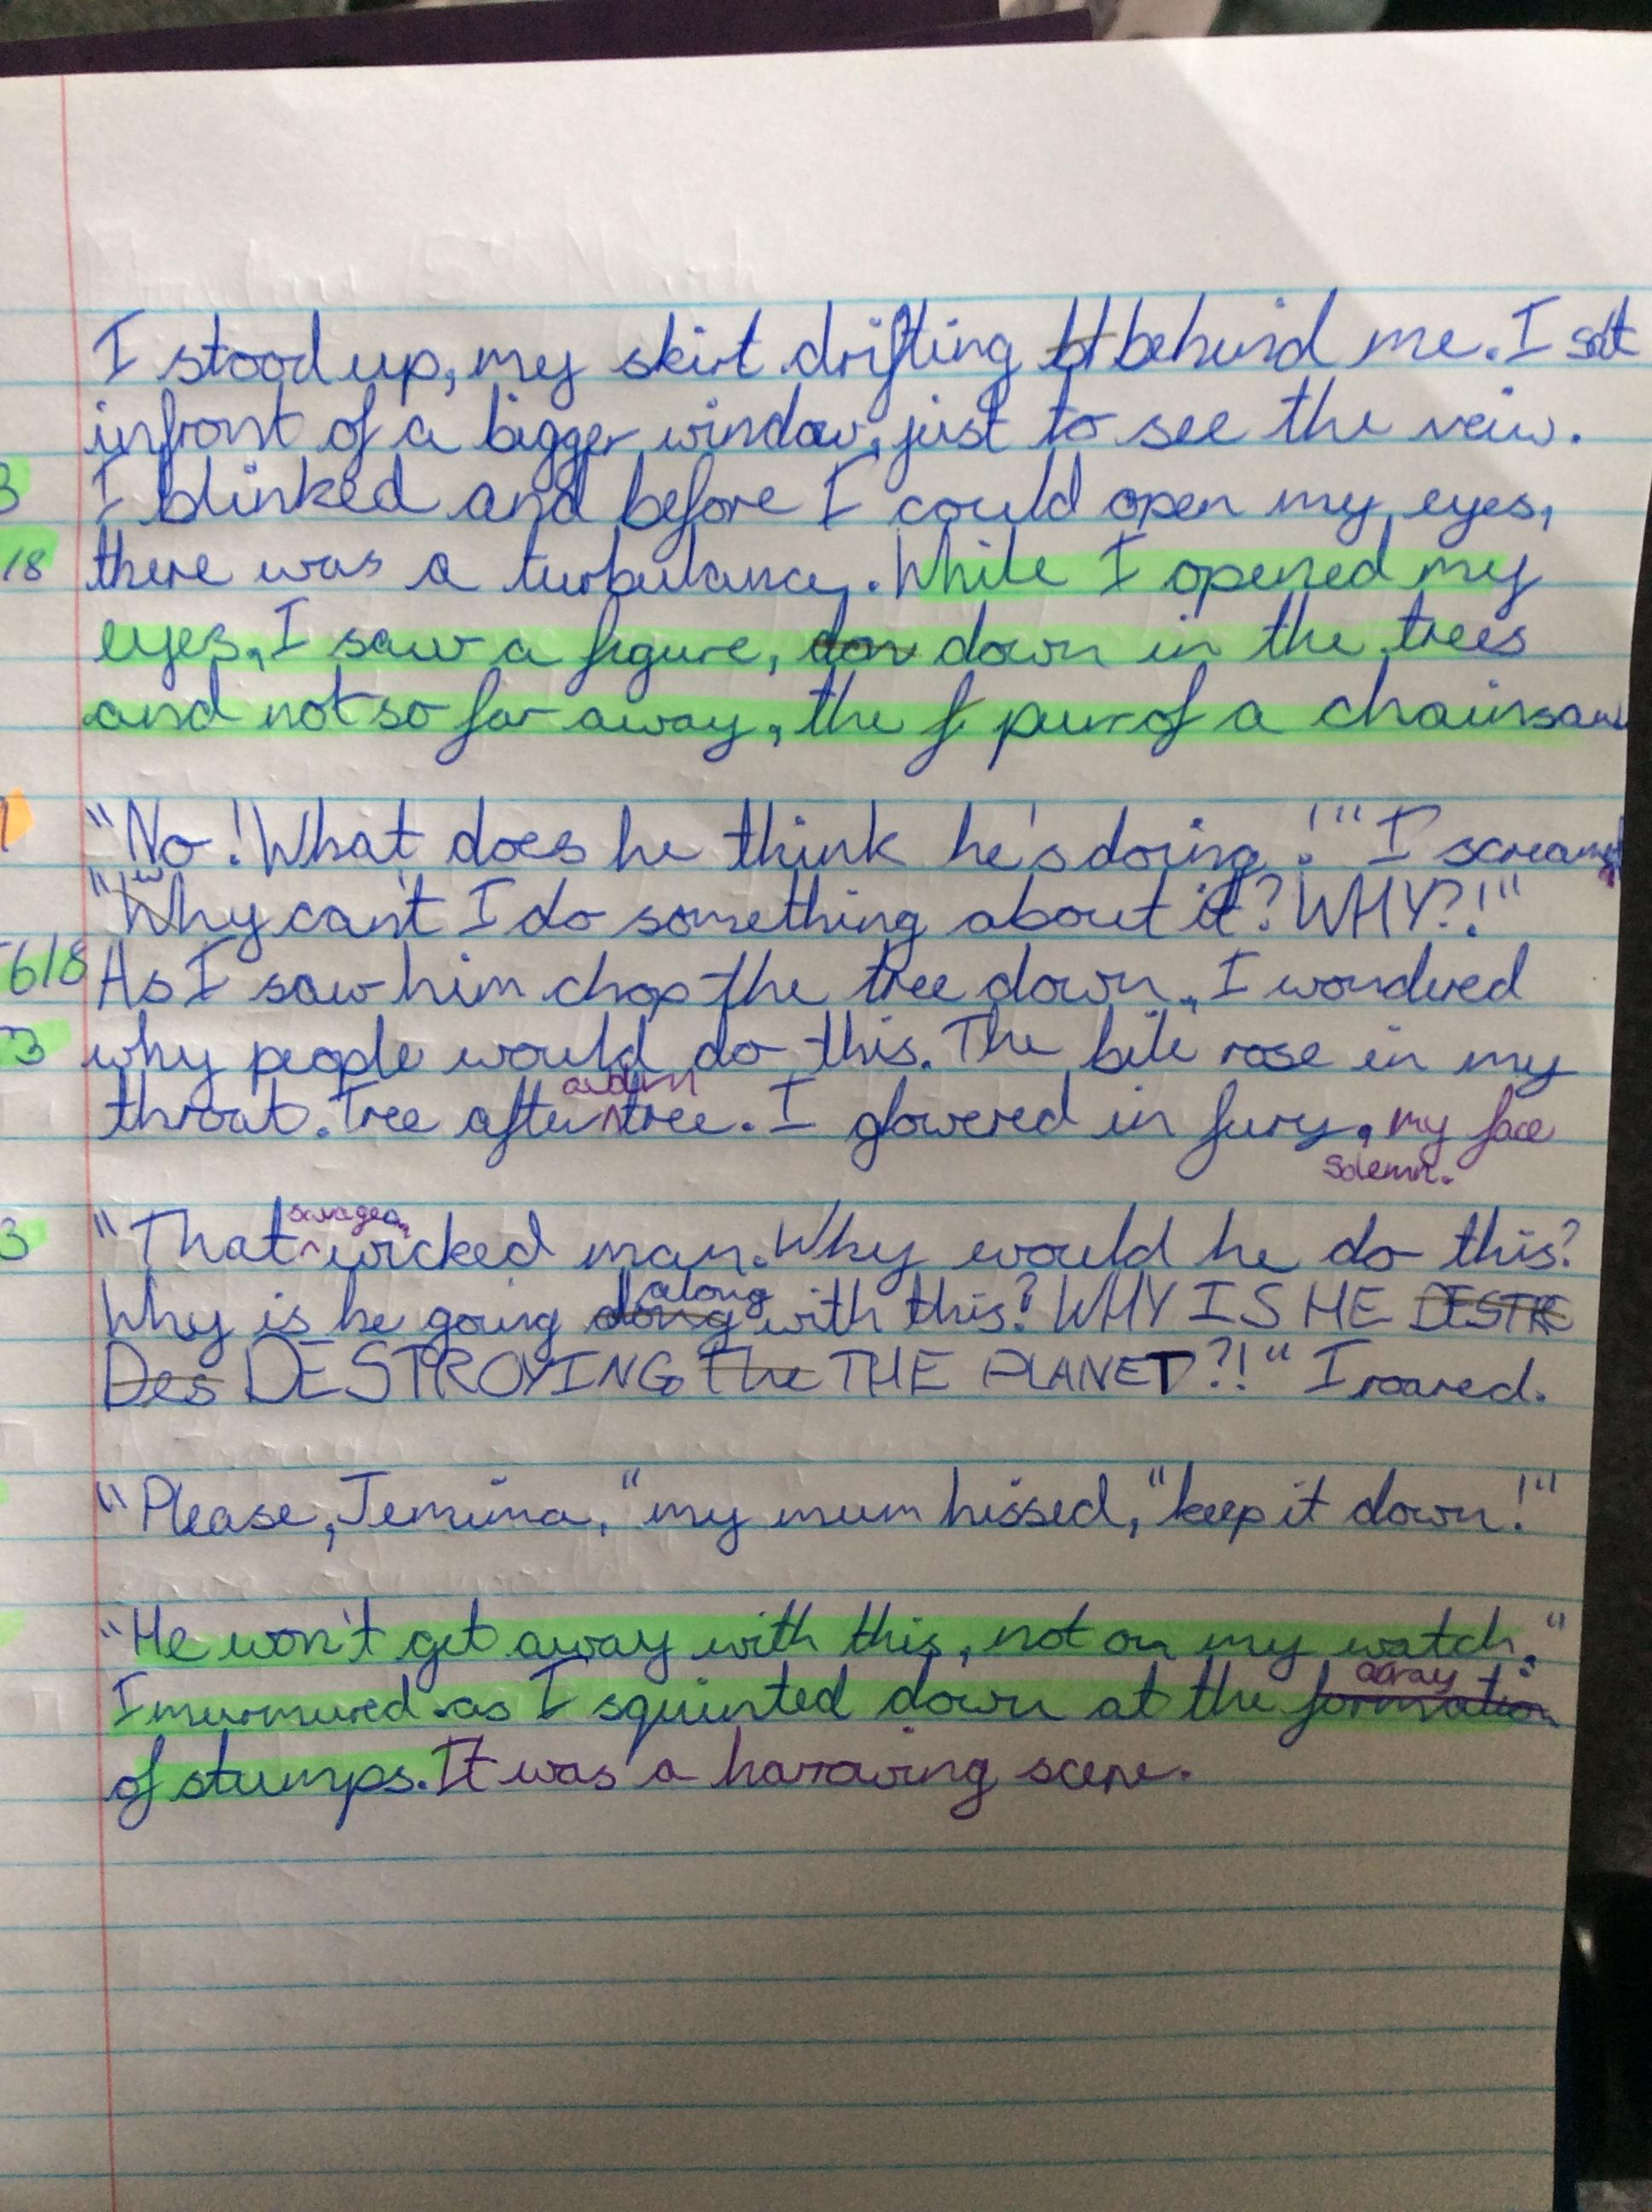 I stood up, my skirt drifting bt behind me. I sat
infront of a bigger window, just to see the veiw.
3 I blinked and before I could open my eyes,
18 there was a turbulance. While I opened my
eyes, I saw a figure, don down in the trees
and not so far away, the f purr of a chainsaw
"No! What does he think he's doing!" I screamed
"Why can't I do something about it? WHY?!"
618 As I saw him chop the tree down, I wondered
3 why people would do this. The bile rose in my
autumn
throat. Tree after tree. I glowered in fury, my face
solemn.
savage,
3 "That wicked man. Why would he do this?
along
Why is he going dong with this? WHY IS HE DESTR
Des DESTROYING The THE PLANET?!" I roared.
"Please, Jemima," my mum hissed, "keep it down!"
"He won't get away with this, not on my watch."
array
I murmured as I squinted down at the formation
of stumps. It was a harrowing scene.